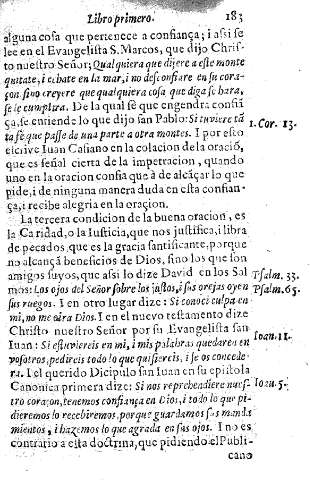 Libro primero. 183
alguna cosa que pertenece a confiança; i assi se
lee en el Evangelista S. Marcos, que dijo Chris-
to nuestro Señor; Qualquiera que dijere a este monte
quitate, i echate en la mar, i no desconfiare en su cora-
çon, sino creyere que qualquiera cosa que diga se hara,
se le cumplira. De la qual fè que engendra confiã
ça, se entiende lo que dijo san Pablo: Si tuviere tã
ta fè que passe de una parte a otra montes. I por esto 1. Cor. 13.
escrive Iuan Casiano en la colacion de la oraciõ,
que es señal cierta de la impetracion, quando
uno en la oracion confia que à de alcãçar lo que
pide, i de ninguna manera duda en esta confian-
ça, i recibe alegria en la oraçion.
La tercera condicion de la buena oracion, es
la Caridad, o la Iusticia, que nos justifica, i libra
de pecados, que es la gracia santificante, porque
no alcançã beneficios de Dios, sino los que son
amigos suyos, que assi lo dize David en los Sal
mos: Los ojos del Señor sobre los justos, i sus orejas oyen Psalm. 33.
sus ruegos. I en otro lugar dize: Si conoci culpa en Psalm. 65.
mi, no me oira Dios. I en el nuevo testamento dize
Christo nuestro Señor por su Evangelista san
Iuan: Si estuviereis en mi, i mis palabras quedaren en Ioan. 11.
vosotros, pedireis todo lo que quisiereis, i se os concede-
ra. I el querido Dicipulo san Iuan en su epistola
Canonica primera dize: Si nos reprehendiere nues-
tro coraçon, tenemos confiança en Dios, i todo lo que pi- Ioan. 5.
dieremos lo recebiremos, porque guardamos sus manda
mientos, i hazemos lo que agrada en sus ojos. I no es
contrario a esta doctrina, que pidiendo el Publi-
cano